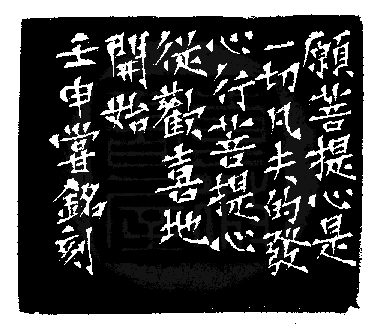 願菩提心是
一切凡夫的發
心行菩提心
從歡喜地
開始
壬申銘刻